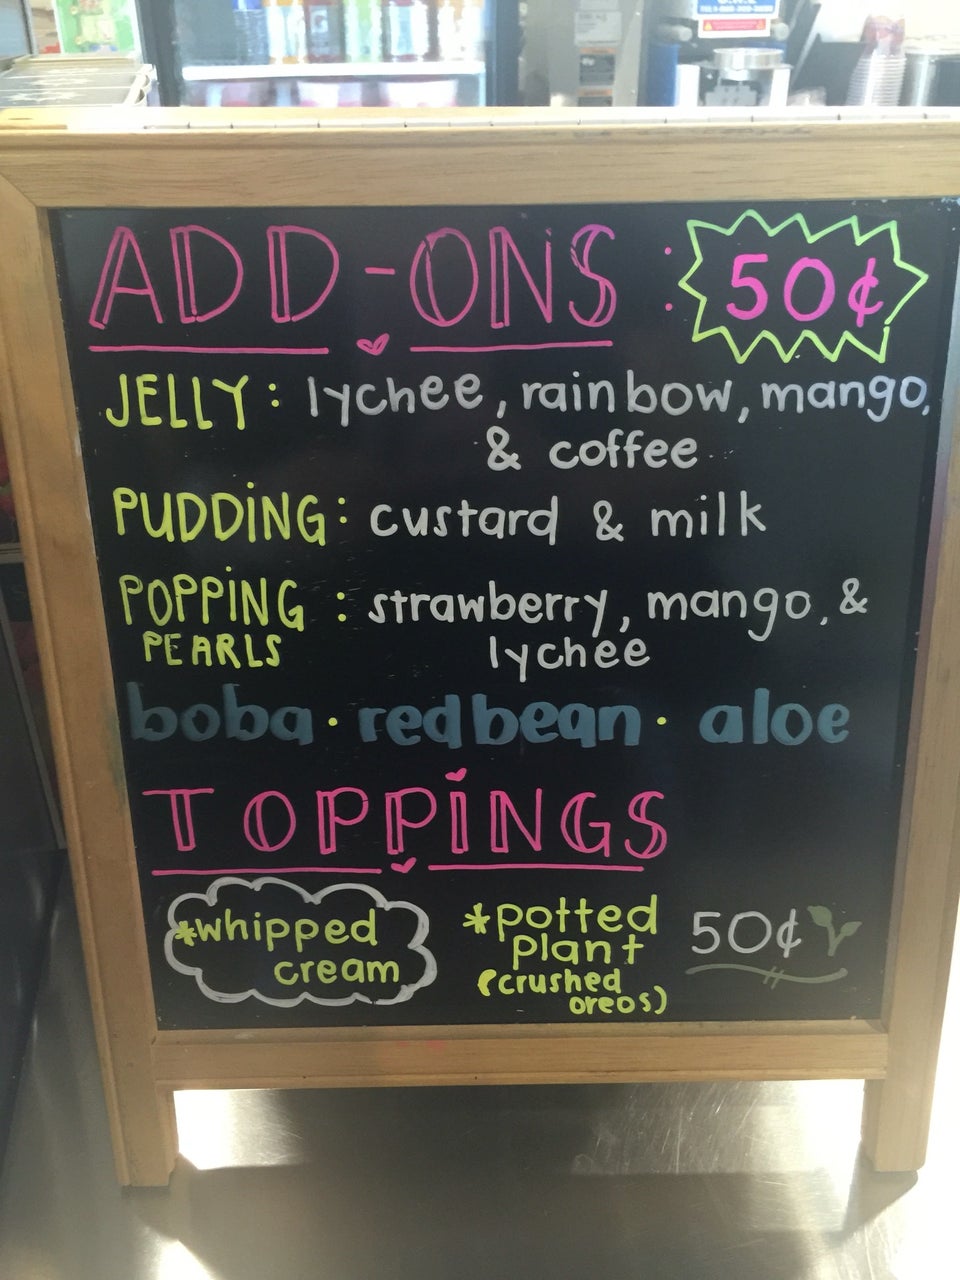 ADD-ONS : 50¢
JELLY: lychee, rainbow, mango,
& coffee
PUDDiNG: custard & milk
POPPiNG : strawberry, mango, &
PEARLS lychee
boba · red bean · aloe
TOPPiNGS
*whipped
cream
*potted
plant
(crushed
oreos)
50¢